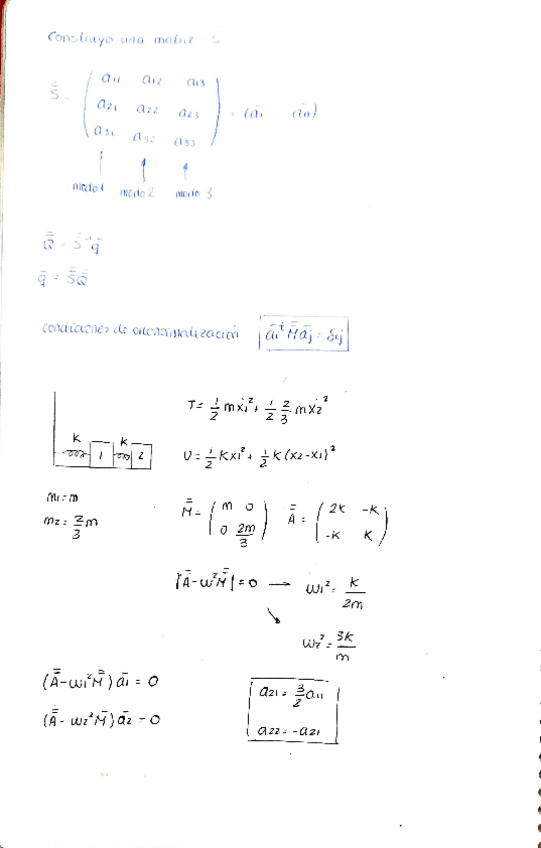 Construyo una matriz S
S̿ = ( a11 a12 a13
a21 a22 a23 = (ā1 ān)
a31 a32 a33 )
modo1 modo 2 modo 3
Q̿ = S̿⁻¹ q̄
q̄ = S̿Q̄
condiciones de ortonormalización āiᵗ M̿ āj = δij
T = 1/2 mẋ1² + 1/2 2/3 mẋ2²
K K
1 2
U = 1/2 Kx1² + 1/2 K (x2-x1)²
m1 = m
m2 = 2/3 m
M̿ = ( m 0
0 2m/3 ) A̿ = ( 2K -K
-K K )
|A̿ - ω²M̿| = 0 → ω1² = K/2m
↘ ω2² = 3K/m
(A̿ - ω1² M̿) ā1 = 0
(A̿ - ω2² M̄) ā2 = 0
a21 = 3/2 a11
a22 = -a21